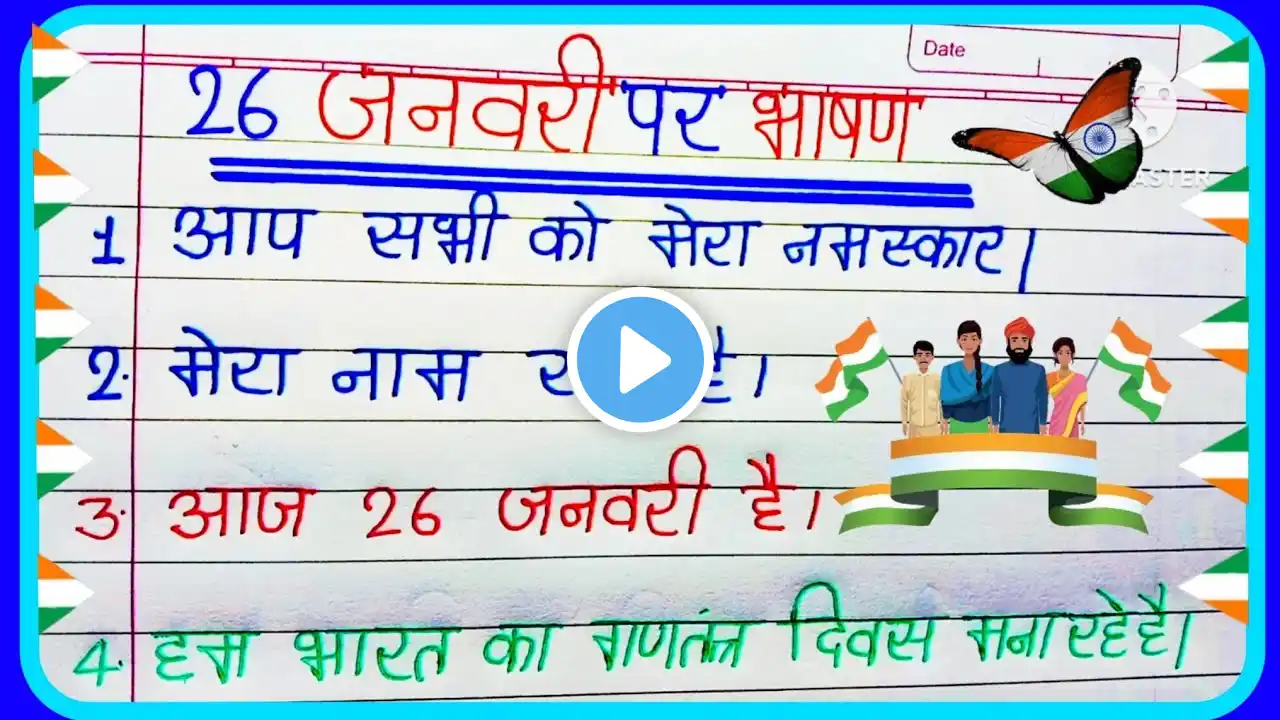 Date
26 जनवरी पर भाषण
ASTER
1 आप सभी को मेरा नमस्कार।
2. मेरा नाम है।
3. आज 26 जनवरी है।
4. हम भारत का गणतंत्र दिवस मना रहे है।